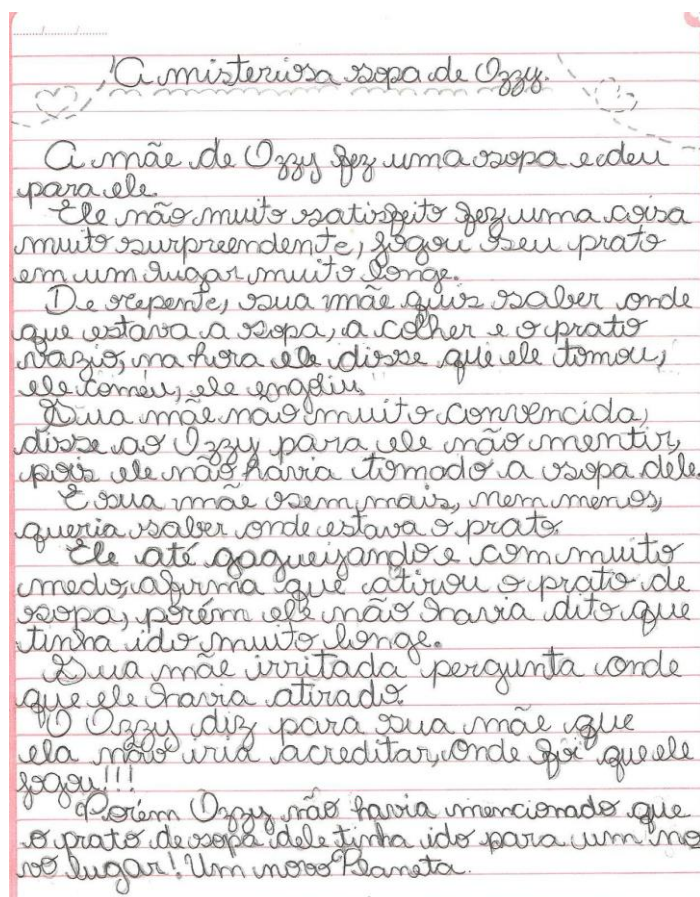 A misteriosa sopa de Ozzy.
A mãe de Ozzy fez uma sopa e deu
para ele.
Ele não muito satisfeito fez uma coisa
muito surpreendente, jogou seu prato
em um lugar muito longe.
De repente, sua mãe quis saber onde
que estava a sopa, a colher e o prato
vazio, na hora ele disse que ele tomou,
ele comeu, ele engoliu.
Sua mãe não muito convencida,
disse ao Ozzy para ele não mentir,
pois ele não havia tomado a sopa dele.
E sua mãe sem mais, nem menos,
queria saber onde estava o prato.
Ele até gagueijando e com muito
medo, afirma que atirou o prato de
sopa, porém ele não havia dito que
tinha ido muito longe.
Sua mãe irritada pergunta onde
que ele havia atirado.
O Ozzy diz para sua mãe que
ela não iria acreditar, onde foi que ele
jogou!!!
Porém Ozzy não havia mencionado que
o prato de sopa dele tinha ido para um no
vo lugar! Um novo Planeta.